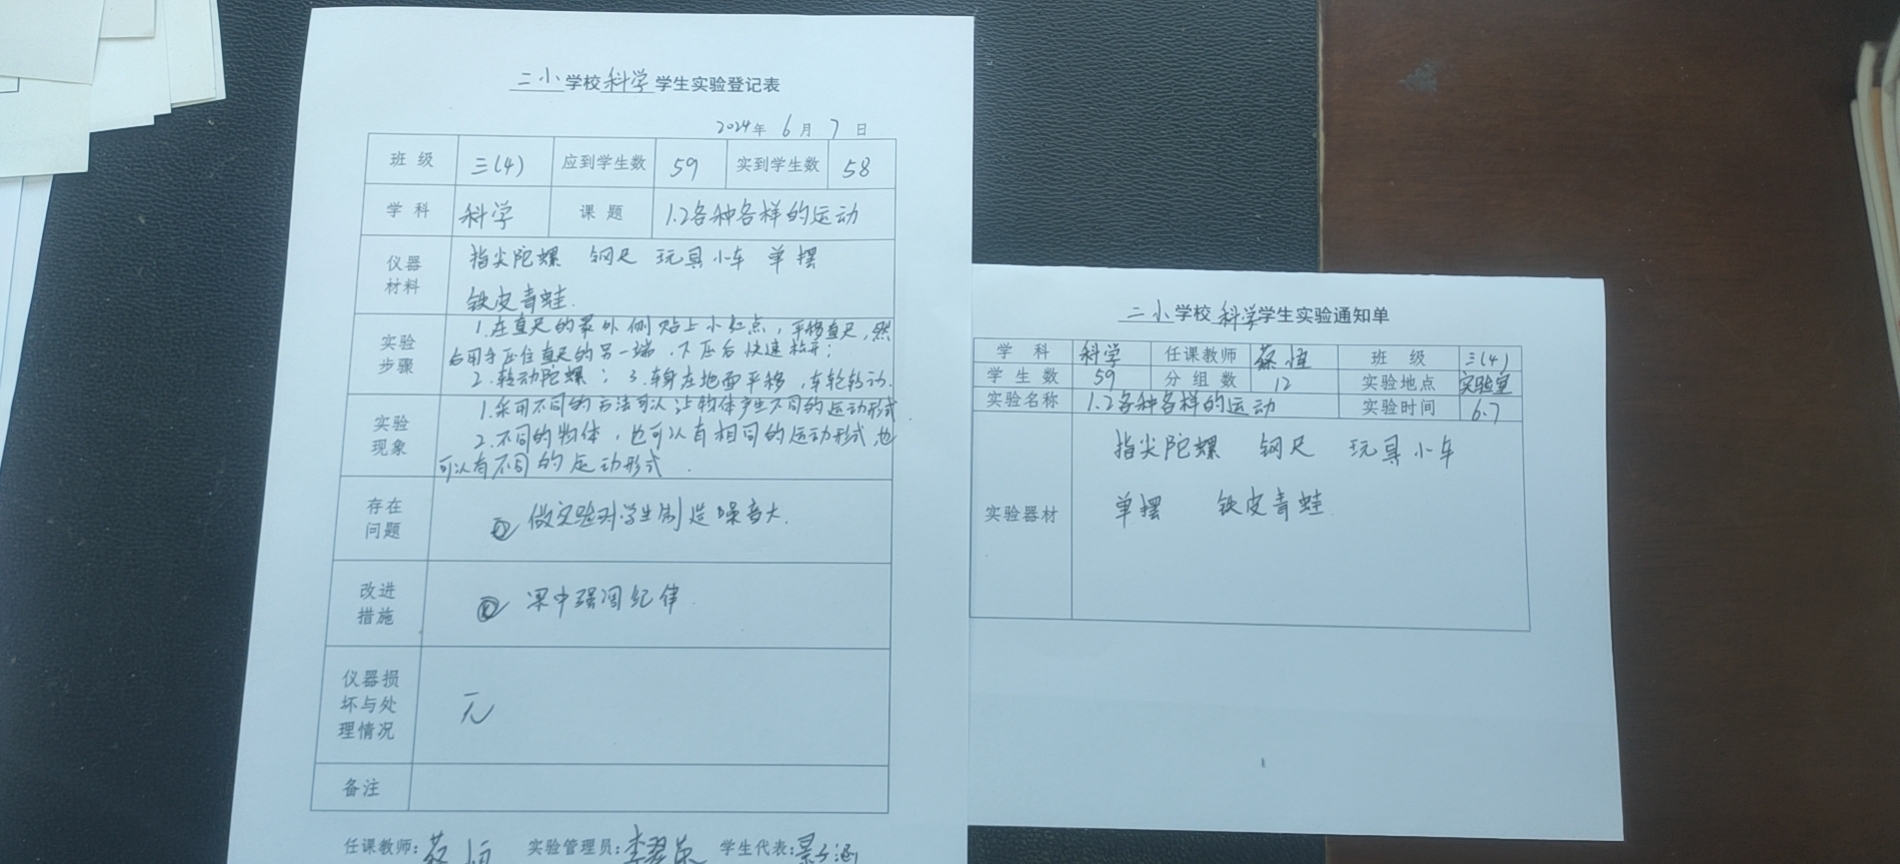 二小学校科学学生实验登记表
2024年 6月 7日
班级 三(4) 应到学生数 59 实到学生数 58
学科 科学 课题 1.2各种各样的运动
仪器材料 指尖陀螺 钢尺 玩具小车 单摆
铁皮青蛙.
实验步骤 1.在直尺的最外侧贴上小红点,平移直尺,然
后用手压住直尺的另一端,下压后快速松开;
2.转动陀螺; 3.车身在地面平移,车轮转动.
实验现象 1.采用不同的方法可以让物体产生不同的运动形式
2.不同的物体,也可以有相同的运动形式,也
可以有不同的运动形式.
存在问题 做实验时学生制造噪音大.
改进措施 课中强调纪律
仪器损坏与处理情况 无
备注
任课教师: 蔡恒 实验管理员: 学生代表:
二小学校科学学生实验通知单
学科 科学 任课教师 蔡恒 班级 三(4)
学生数 59 分组数 12 实验地点 实验室
实验名称 1.2各种各样的运动 实验时间 6.7
实验器材 指尖陀螺 钢尺 玩具小车
单摆 铁皮青蛙.